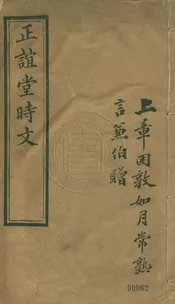 上章困敦如月常熟
言伯贈
正誼堂時文
00062